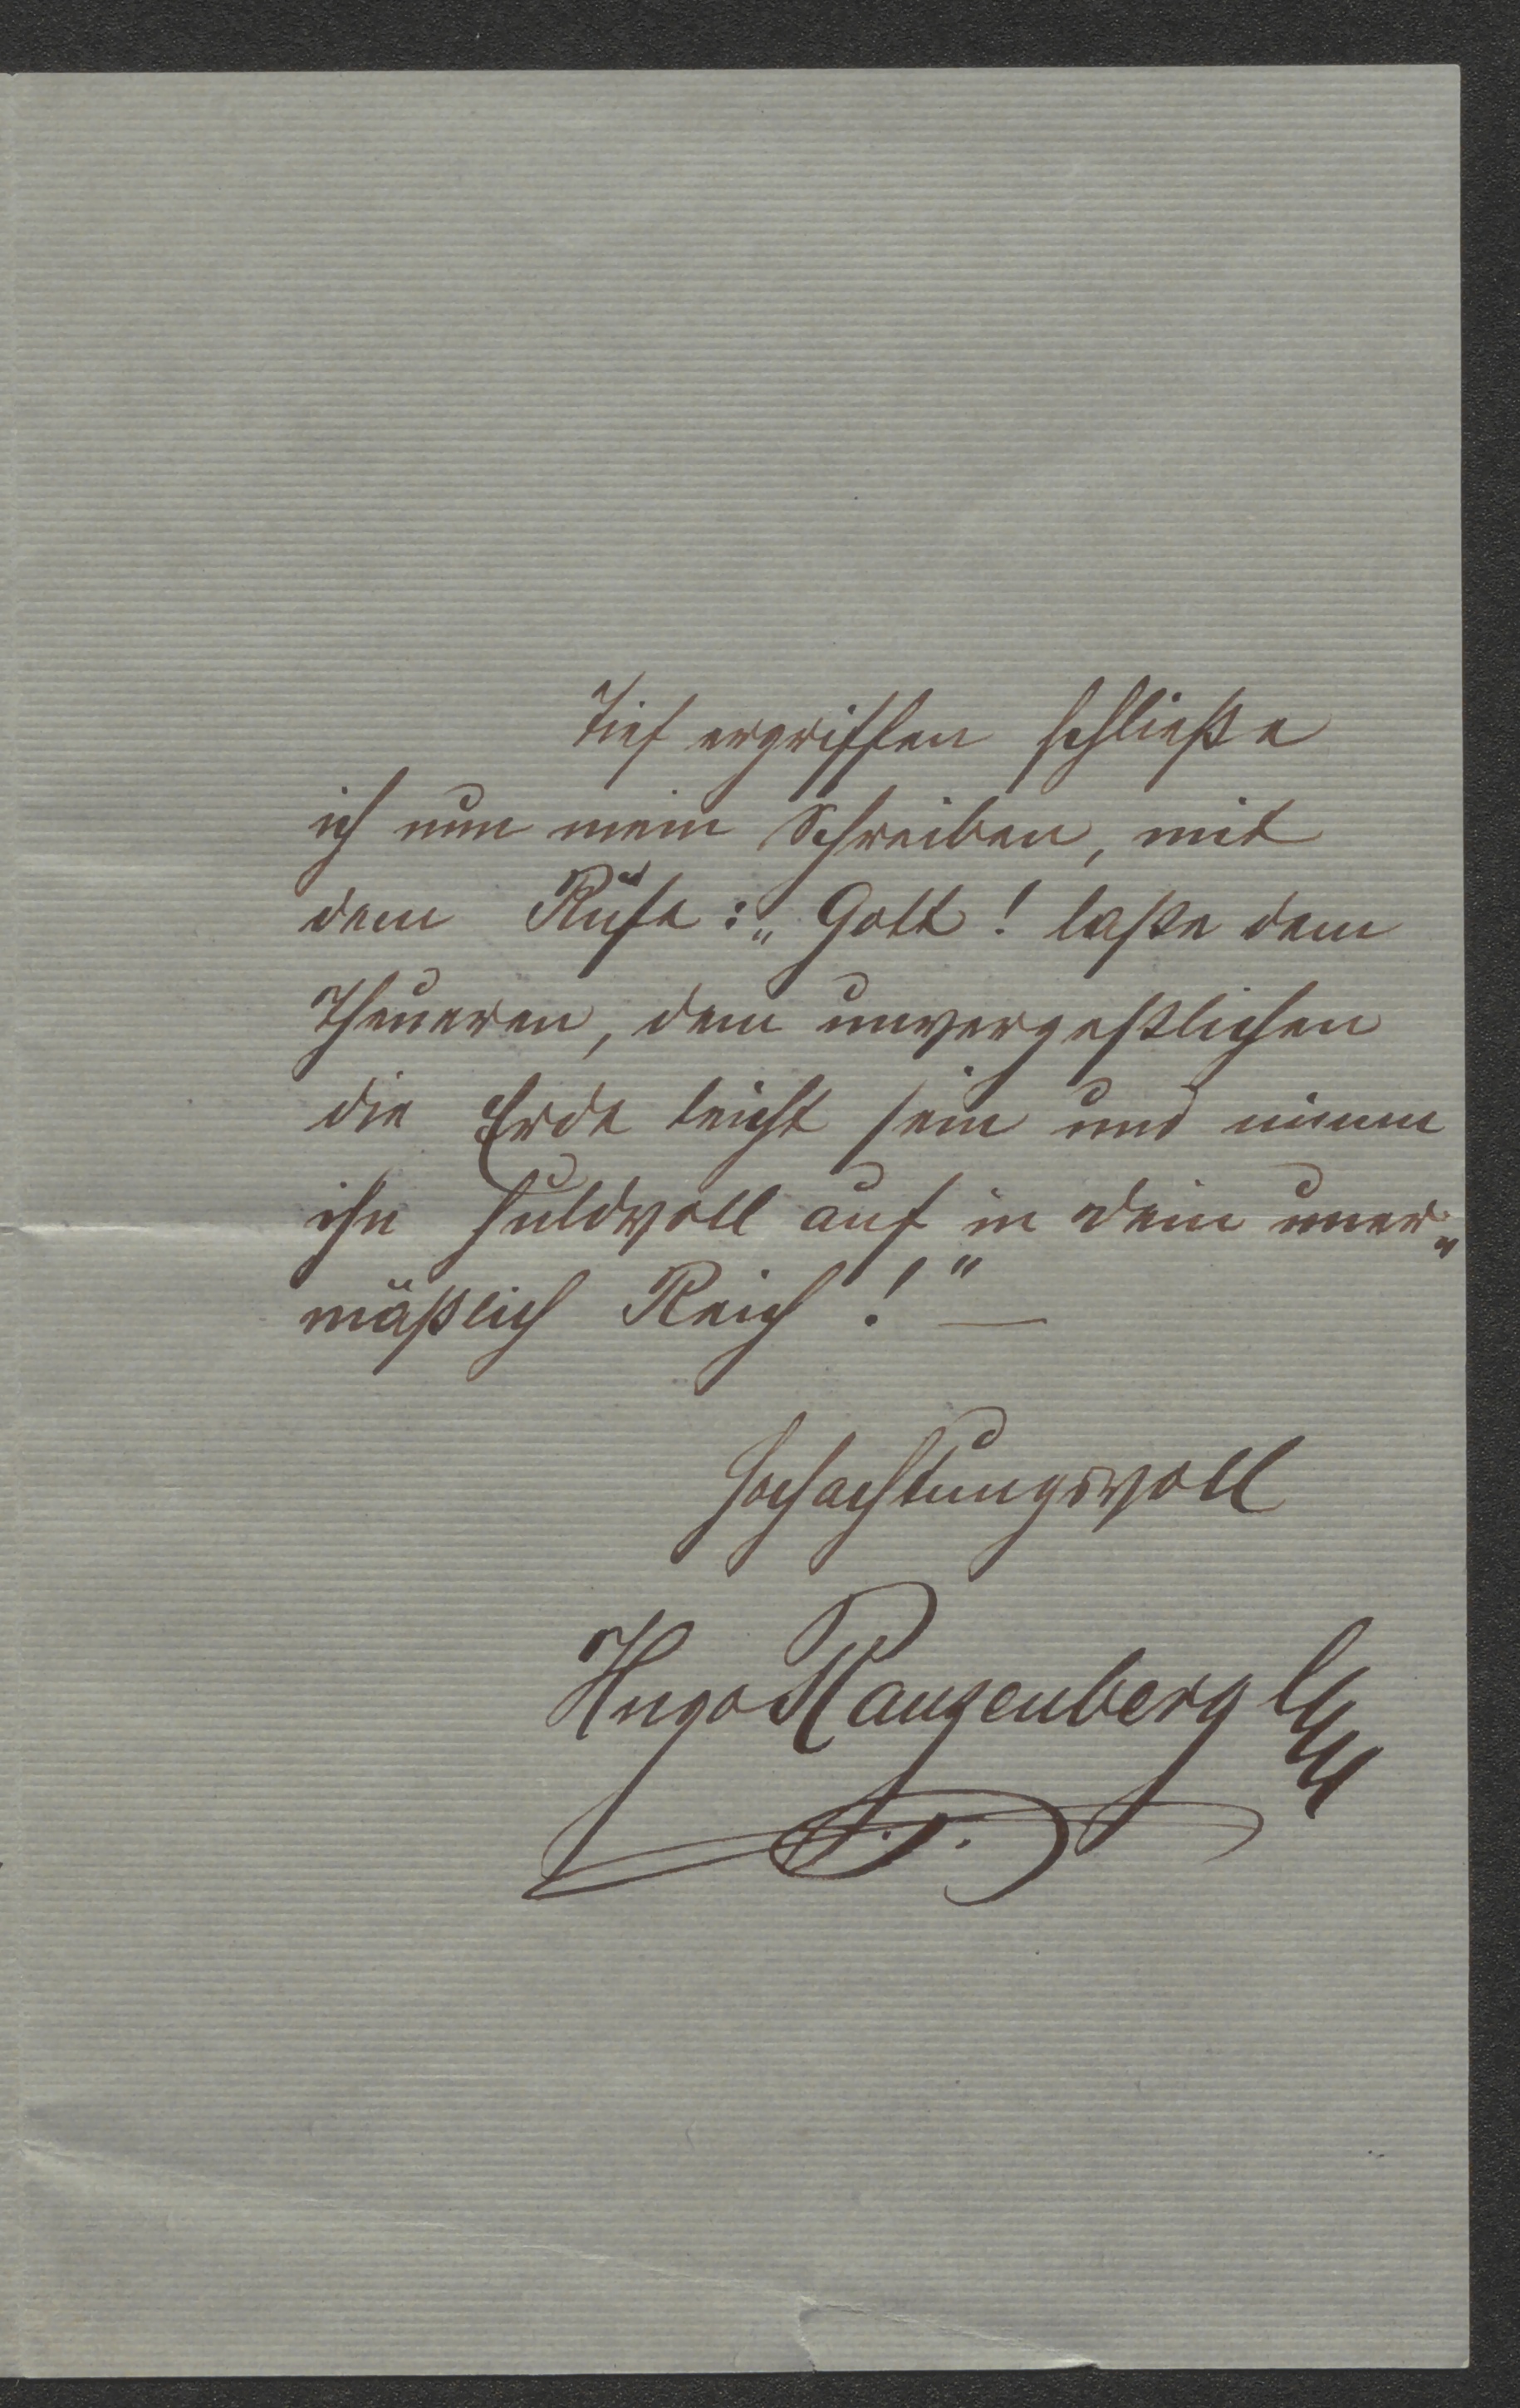 Tief ergriffen schließe
ich nun mein Schreiben, mit
dem Rufe: „Gott! laße dem
Theueren, dem unvergeßlichen
die Erde leicht sein und nimm
ihn huldvoll auf in dein uner„
mäßlich Reich!" —
Hochachtungsvoll
Hugo Ranzenberg